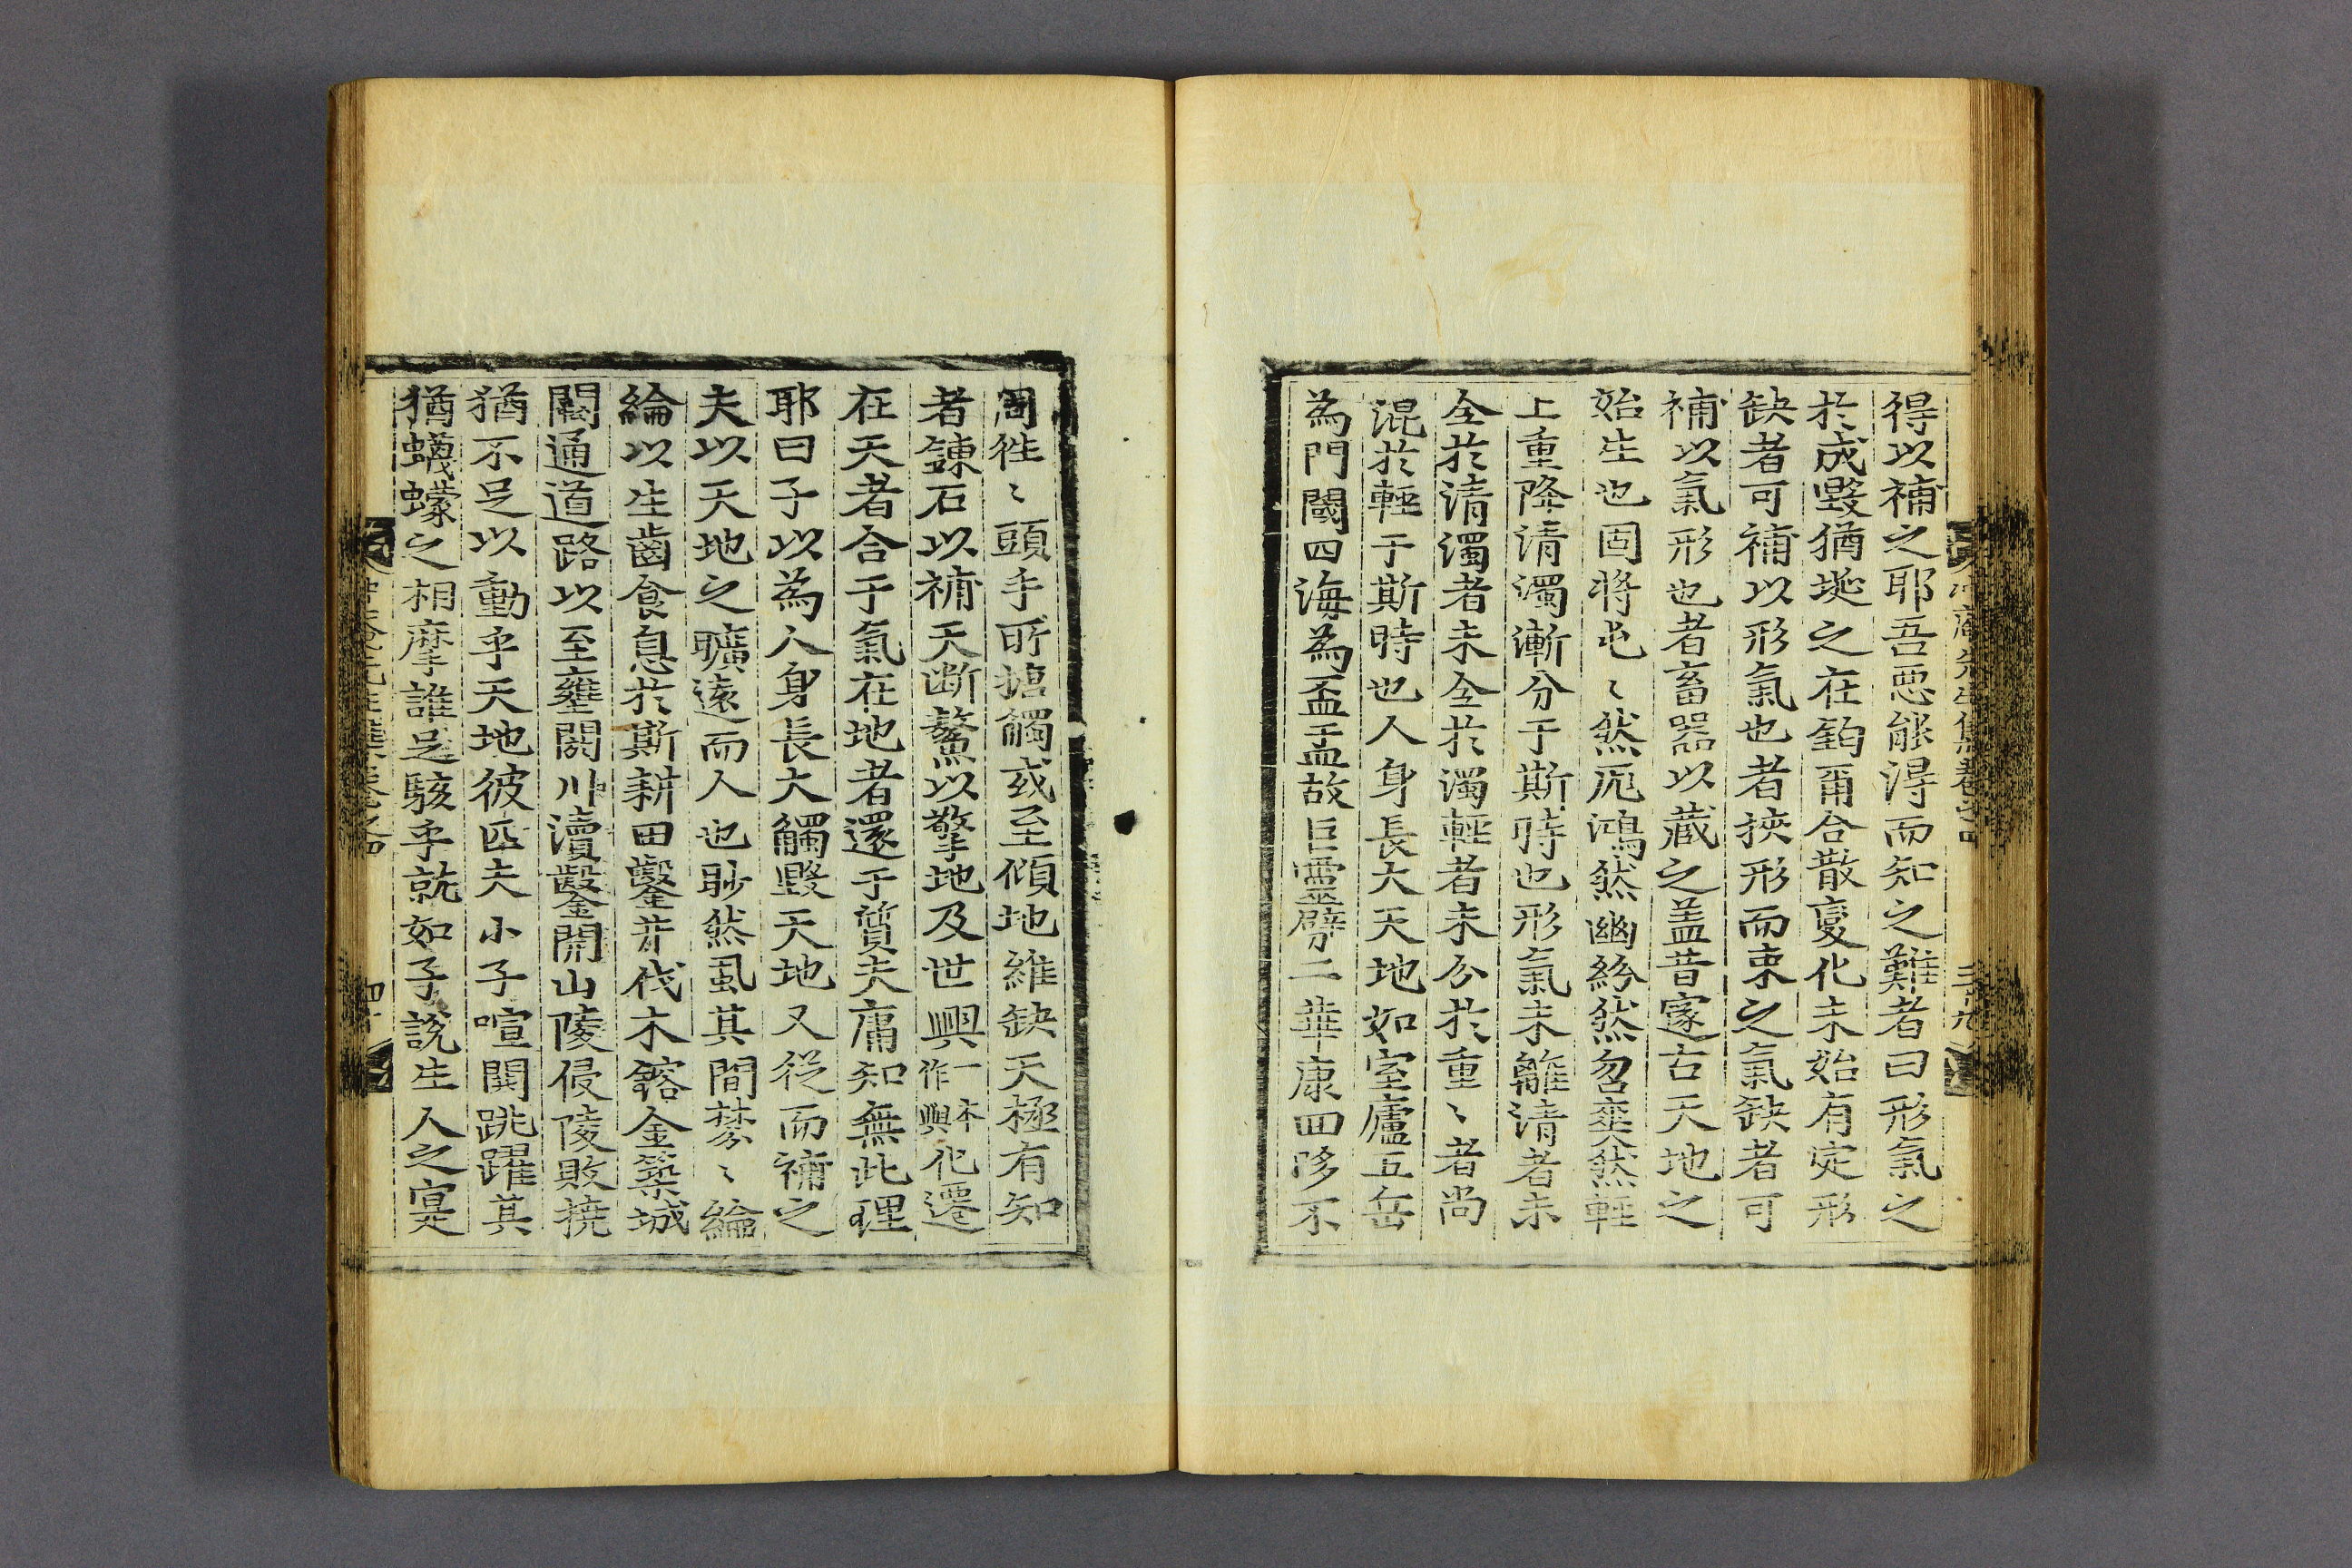 冲庵先生集卷之四 三十九
得以補之耶吾惡能得而知之難者曰形氣之
於成毀猶埏之在鈞爾合散變化未始有定形
缺者可補以形氣也者挾形而束之氣缺者可
補以氣形也者畜器以藏之盖昔邃古天地之
始生也固将屯〻然厖鴻然幽紛然忽奕然輕
上重降清濁漸分于斯時也形氣未離清者未
全於清濁者未全於濁輕者未分於重〻者尚
混於輕于斯時也人身長大天地如室廬五岳
為門閾四海為盃盂故巨靈劈二華康回哆不
周徃〻頭手所搪觸或至傾地維缺天極有知
者鍊石以補天断鰲以擎地及世興一本作與化遷
在天者合于氣在地者還于質夫庸知無此理
耶曰子以為人身長大觸毀天地又從而補之
夫以天地之曠遠而人也眇然虱其間棼〻綸
綸以生齒食息於斯耕田鑿井伐木鎔金築城
闢通道路以至壅閼川瀆鑿開山陵侵陵敗撓
猶不足以動乎天地彼匹夫小子喧鬨跳躍其
猶蠛蠓之相摩誰足駭乎就如子說生人之寔
冲庵先生集卷之四 四十